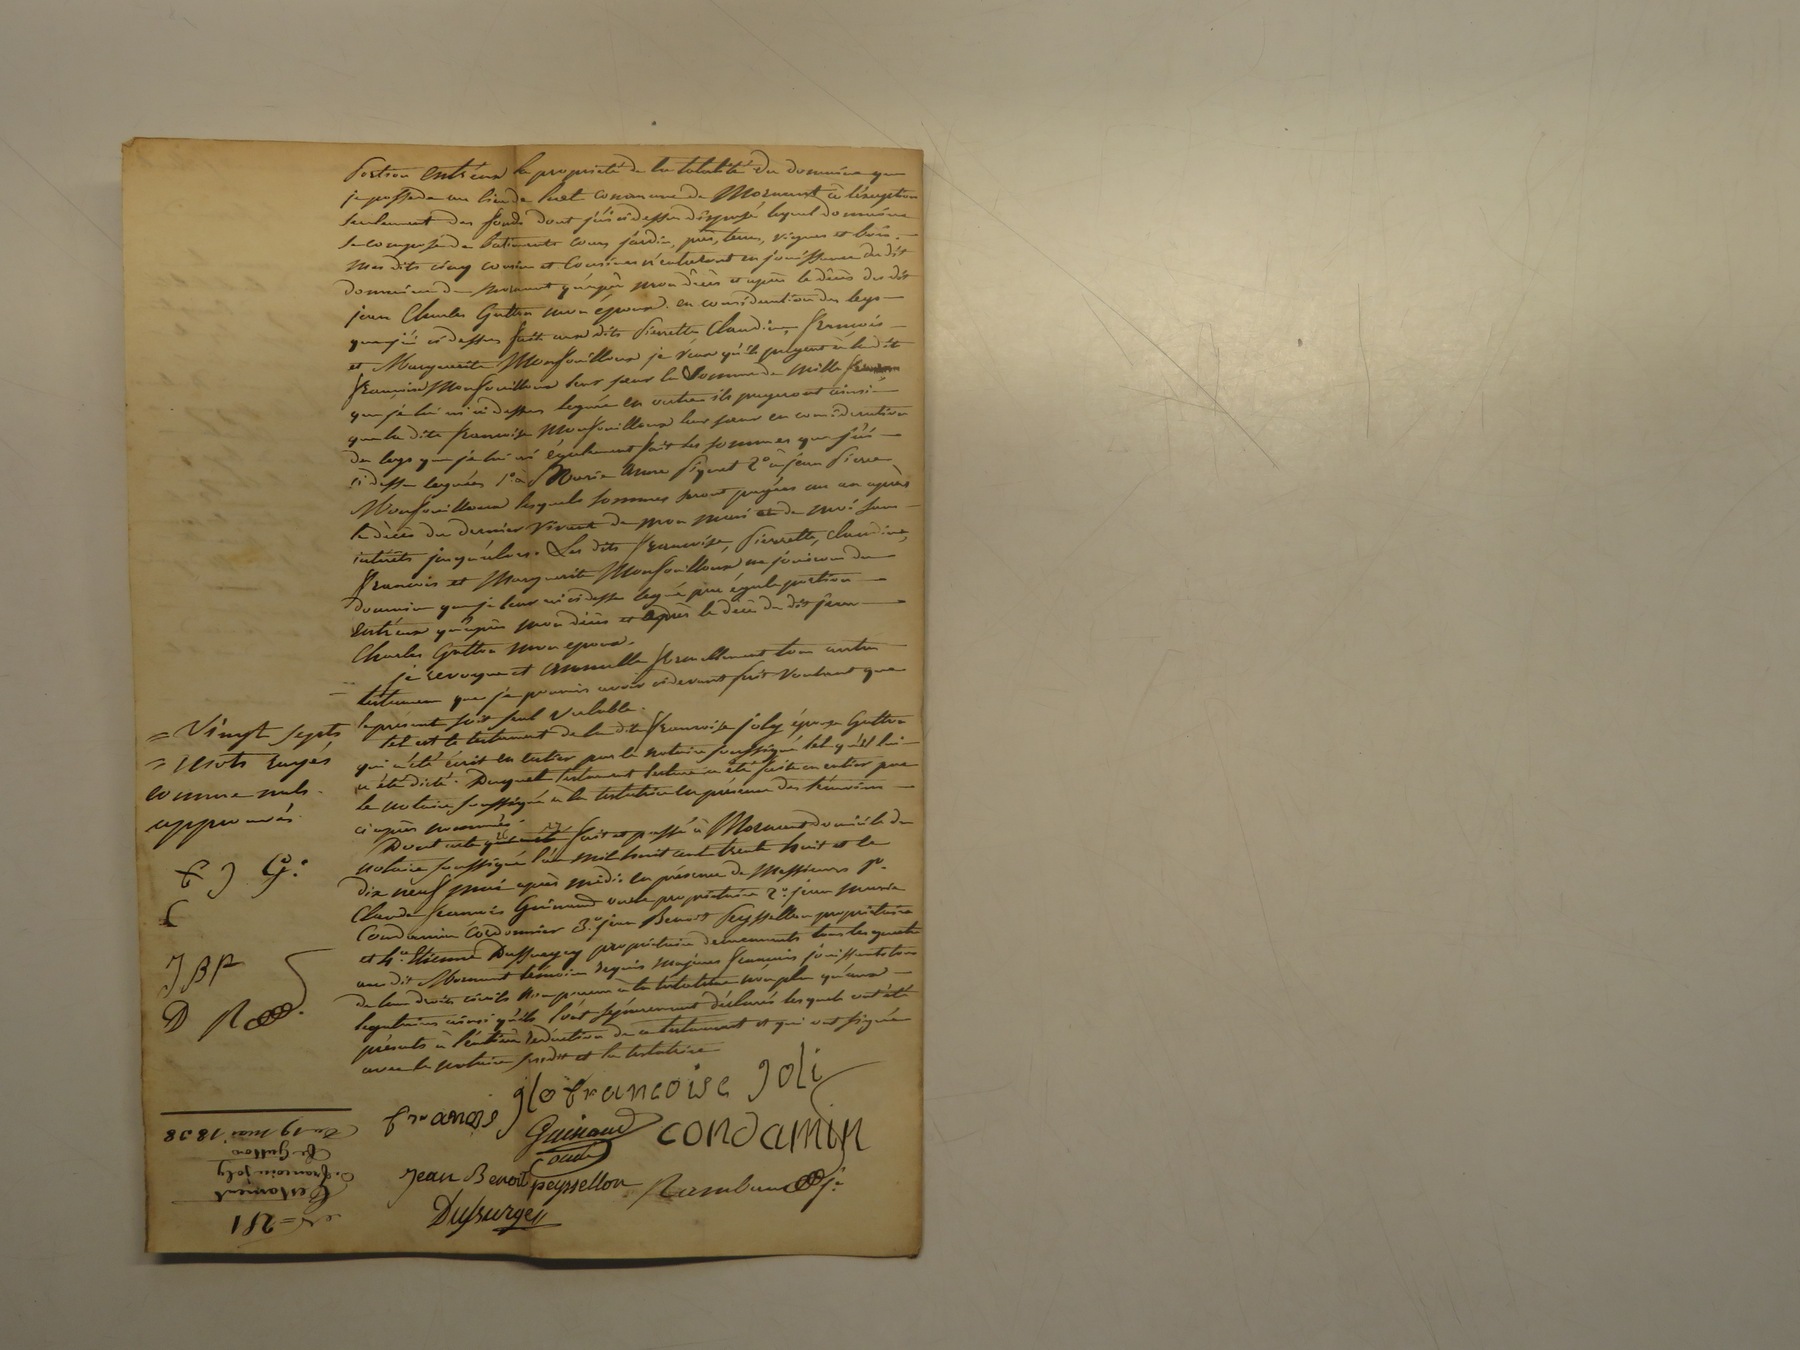 portion entr'eux la propriété de la totalité du domaine que
je possède au lieu de commune de Mornant à l'exception
seulement des fonds dont j'ai ci dessus disposé lequel domaine
se compose de batiments cour, jardin, prés, terres, vignes et bois. —
Mes dits cinq cousins et cousines n'entreront en jouissance du dit
domaine de Mornant qu'après mon décès et après le décès du dit
jean Charles Gutton mon époux. en considération des legs —
que j'ai ci dessus faits aux dits Pierrette, Claudine, françois —
et Marguerite Monfouilloux je veux qu'ils payent à la dite
françoise Monfouilloux leur sœur la somme de mille francs
que je lui ai ci dessus léguée en outre ils payeront ainsi —
que la dite françoise Monfouilloux leur sœur en considération
du legs que je lui ai également fait les sommes que j'ai —
ci dessus léguées 1º à Marie Anne Piquet 2º à jean Pierre
Monfouilloux lesquels sommes seront payées un an après
le décès du dernier vivant de mon mari et de moi sans —
intérêts jusqu'alors. Les dits françoise, Pierrette, Claudine,
françois et Marguerite Monfouilloux ne jouiront du
domaine que je leur ai ci dessus légué par égale portion —
entr'eux qu'après mon décès et après le décès du dit jean —
Charles Gutton mon epoux.
je revoque et annulle formellement tous autres
testamens que je pourrais avoir ci devant fait voulant que
le présent soit seul valable.
tel est le testament de la dite françoise joly épouse Gutton
qui a été écrit en entier par le notaire soussigné tel qu'il lui
a été dicté. Duquel testament lecture a été faite en entier par
le notaire soussigné à la testatrice en présence des témoins —
ci après nommés.
Dont acte fait et passé à Mornant domicile du
notaire soussigné l'an mil huit cent trente huit et le
dix neuf mai après midi en présence de Messieurs 1º.
Claude françois Guinand propriétaire 2º. jean marie
Condamin cordonnier 3º. jean Benoit Peyssellon propriétaire
et 4º. Etienne propriétaire demeurants tous les quatre
au dit Mornant temoins requis majeurs français jouissants tous
de leurs droits civils non parens à la testatrice non plus qu'aux —
legataires ainsi qu'ils l'ont séparement déclaré lesquels ont été
présents à l'entière rédaction de ce testament et qui ont signé
avec le notaire susdit et la testatrice
= Vingt septs
= mots rayés
comme nuls
approuvés.
f J G.
C
J B P
D R
francoise Joli
françois
Guinaud
condamin
Jean Benoit peyssellon
Dufsurgey
Nº 281
Testament
De françoise joly
fe Gutton
Du 19 mai 1838